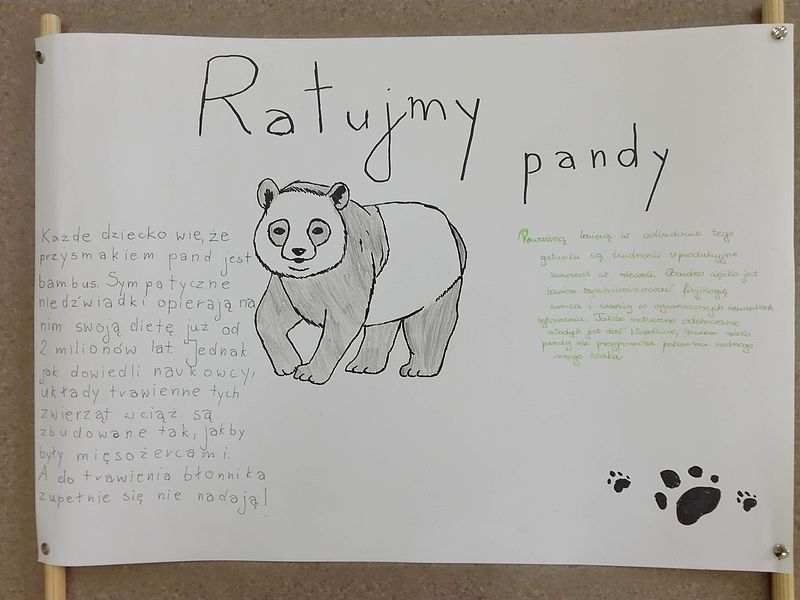 Ratujmy
pandy
Każde dziecko wie, że
przysmakiem pand jest
bambus. Sympatyczne
niedźwiadki opierają na
nim swoją dietę już od
2 milionów lat. Jednak
jak dowiedli naukowcy,
układy trawienne tych
zwierząt wciąż są
zbudowane tak, jakby
były mięsożercami.
A do trawienia błonnika
zupełnie się nie nadają!
Poważną w odbudowie tego
gatunku są trudności reprodukcyjne
zwierząt w niewoli. Bardzo ciężko jest
bowiem zsynchronizować fizjologię
samca i samicy w ograniczonych warunkach
bytowania. Także sztuczne odchowanie
młodych jest dość kłopotliwe, bowiem mleko
pandy nie przypomina pokarmu żadnego
innego ssaka